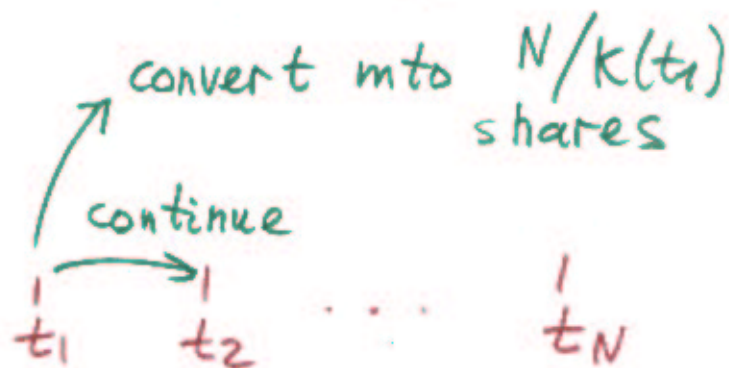 convert into N/K(t₁)
shares
continue
t₁ t₂ ... t_N